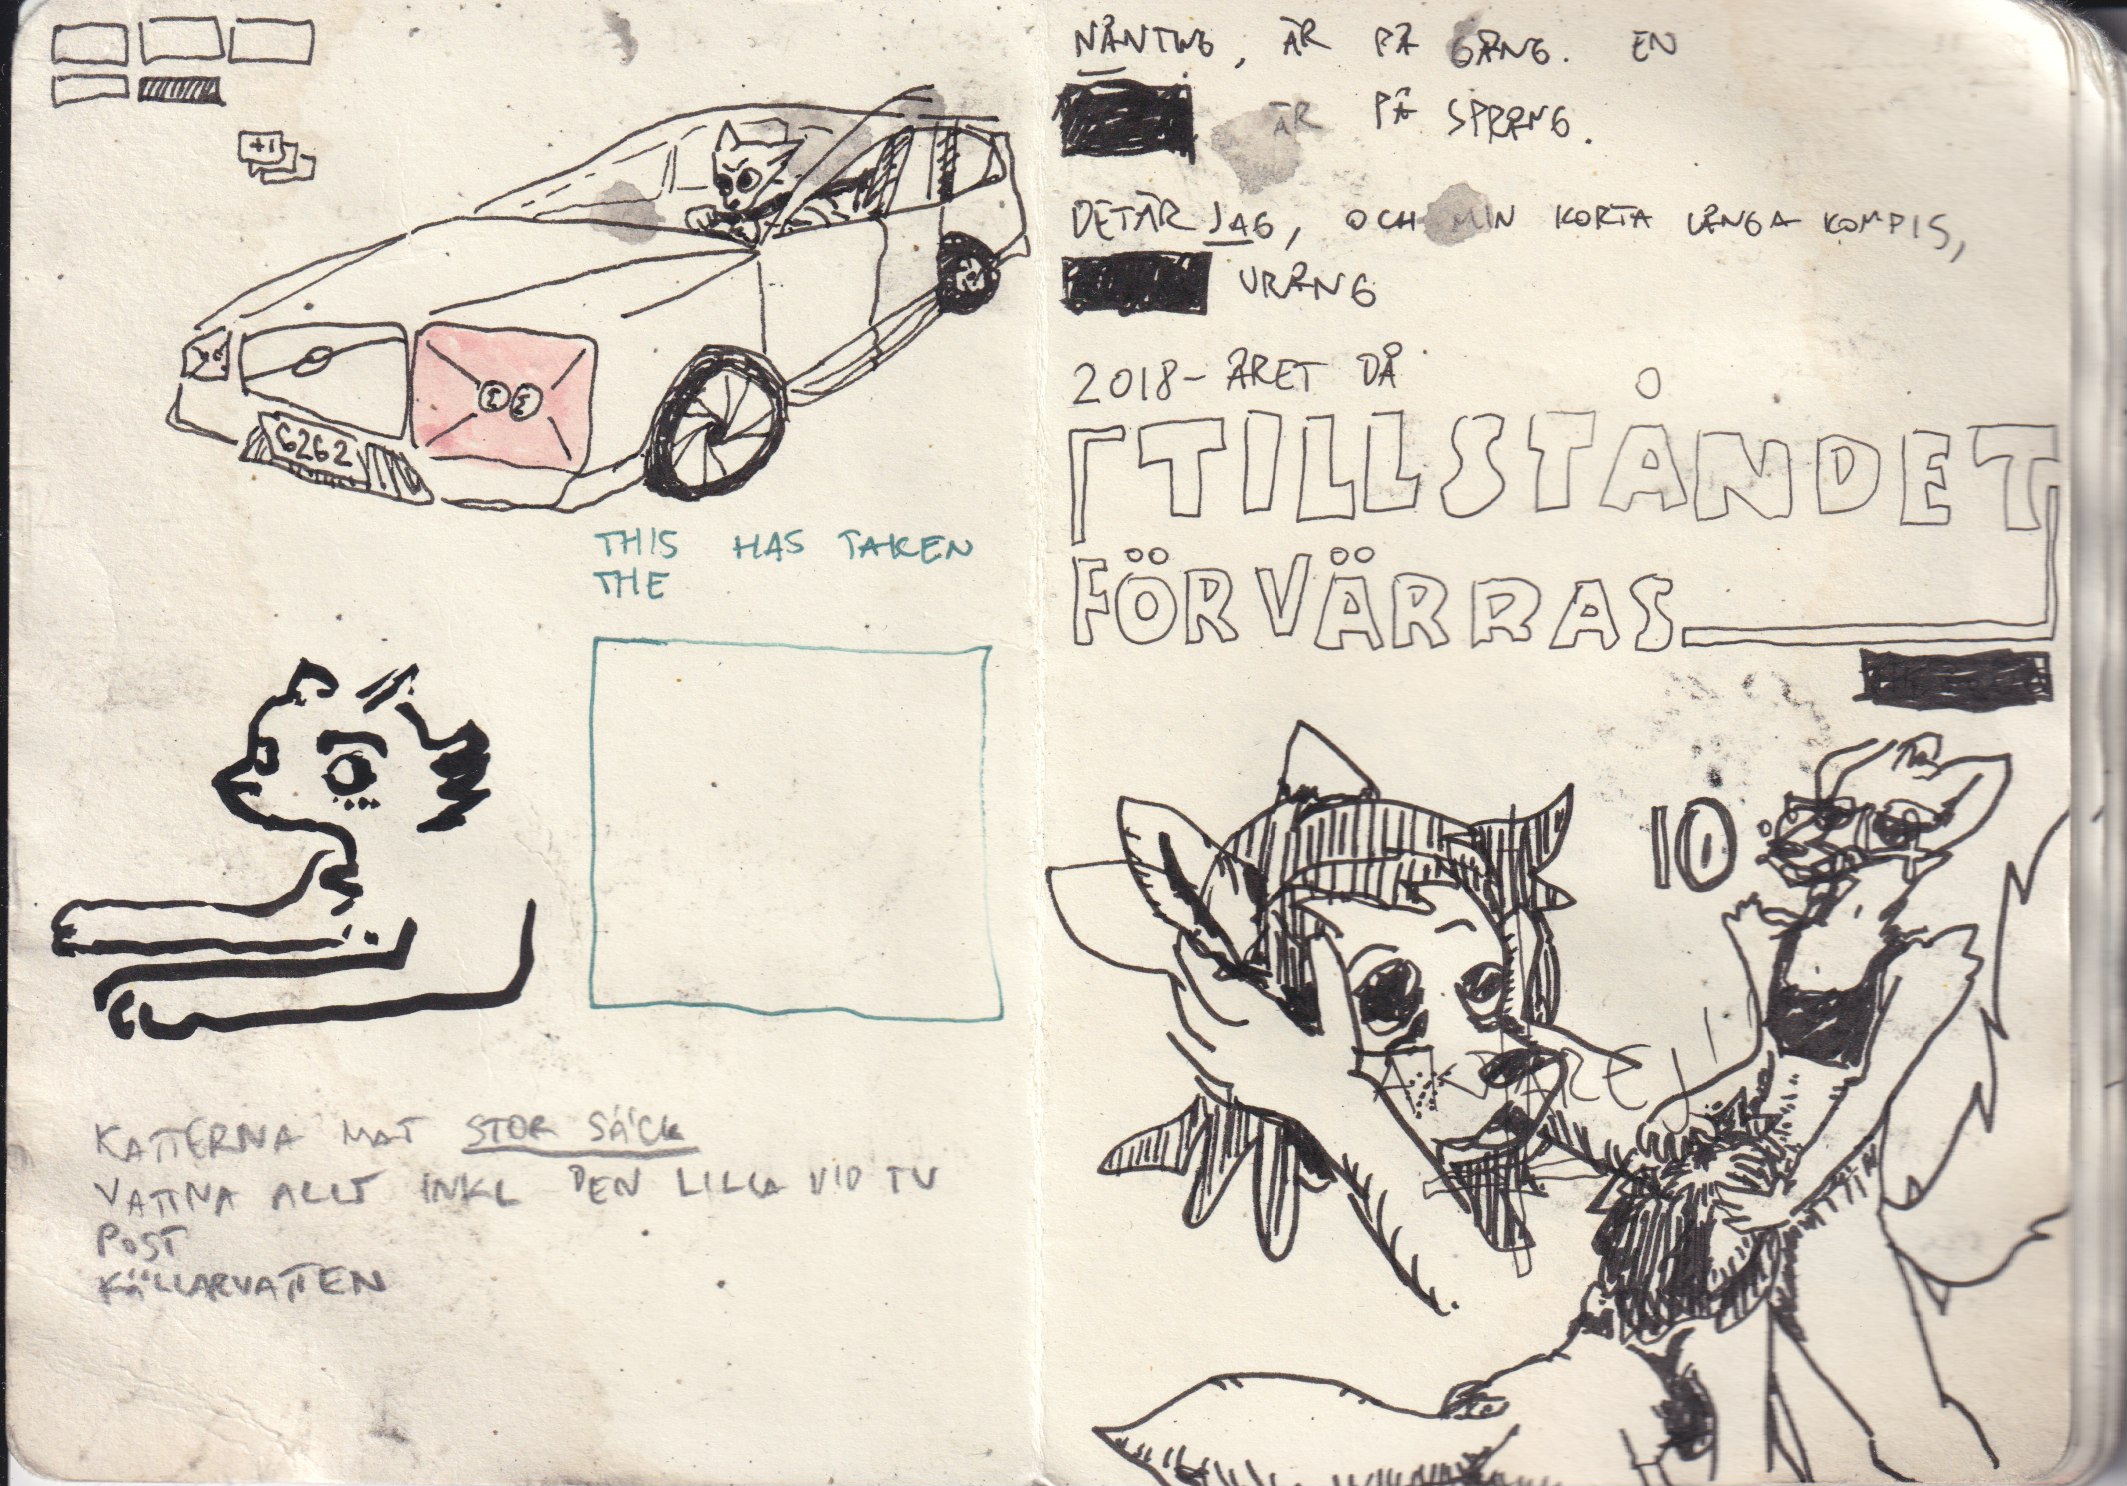 +1
6262
THIS HAS TAKEN
THE
KATTERNA MAT STOR SÄCK
VATTNA ALLT INKL DEN LILLA VID TV
POST
KÄLLARVATTEN
NÅNTING, ÄR PÅ GÅNG. EN
ÄR PÅ SPRÅNG.
DET ÄR JAG, OCH MIN KORTA LÅNGA KOMPIS,
VRÅNG
2018 - ÅRET DÅ
TILLSTÅNDET
FÖRVÄRRAS
10